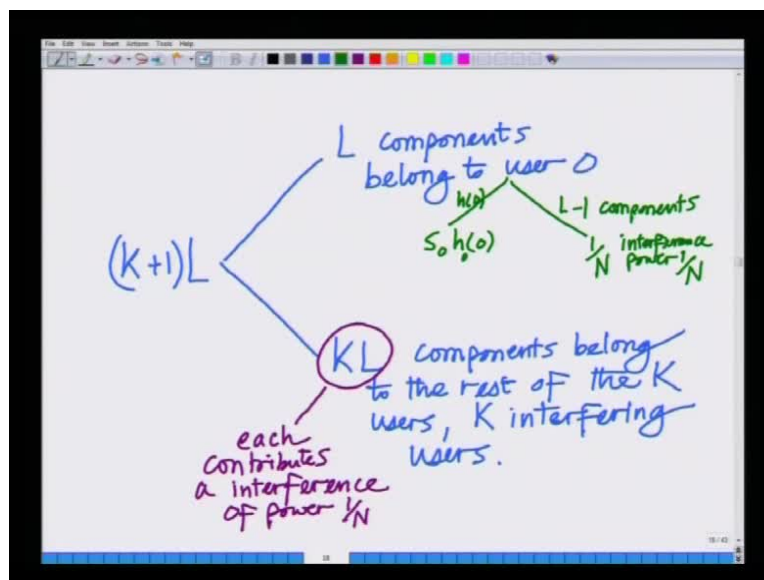 File Edit View Insert Actions Tools Help
L components
belong to user 0
h(0)
S₀ h₀(0)
L-1 components
1/N interference
power 1/N
(K+1)L
KL components belong
to the rest of the K
users, K interfering
users.
each
contributes
a interference
of power 1/N
18